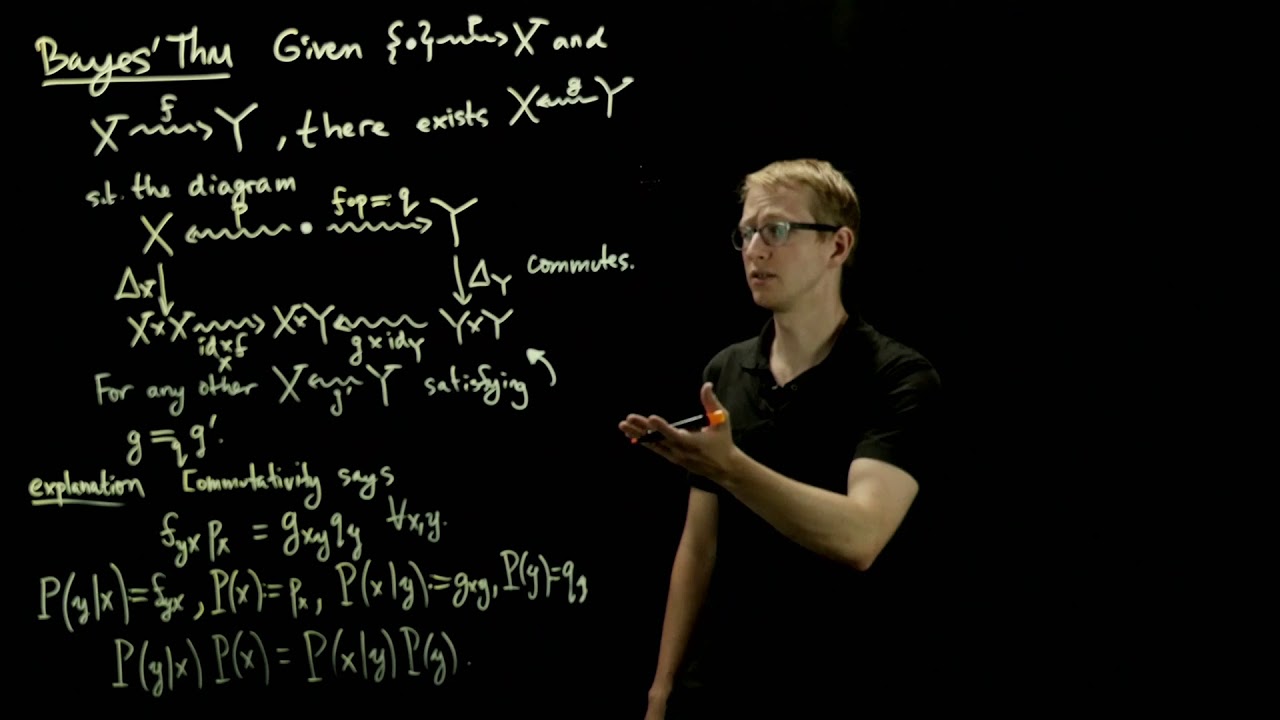 Bayes' Thm Given {•} ⇝ᵖ X and
X ⇝ᶠ Y , there exists X ⇜ᵍ Y
s.t. the diagram
X ⇜ᵖ • ⇝ Y f∘p =: q
Δ_X ↓ ↓ Δ_Y commutes.
X×X ⇝ X×Y ⇜ Y×Y
id_X × f g × id_Y
For any other X ⇜ Y satisfying
g' 
g =_q g'.
explanation Commutativity says
f_yx p_x = g_xy q_y ∀x,y.
P(y|x):=f_yx , P(x):=p_x , P(x|y):=g_xy, P(y)=q_y
P(y|x) P(x) = P(x|y) P(y).